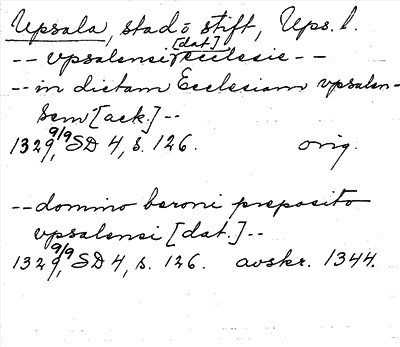 Upsala, stad o stift, Ups. l.
[dat]
-- vpsalensi ecclesie --
-- in dictam Ecclesiam vpsalen-
sem [ack.] --
1329 9/9, SD 4, s. 126. orig.
-- domino beroni preposito
vpsalensi [dat.] --
1329 9/9, SD 4, s. 126. avskr. 1344.